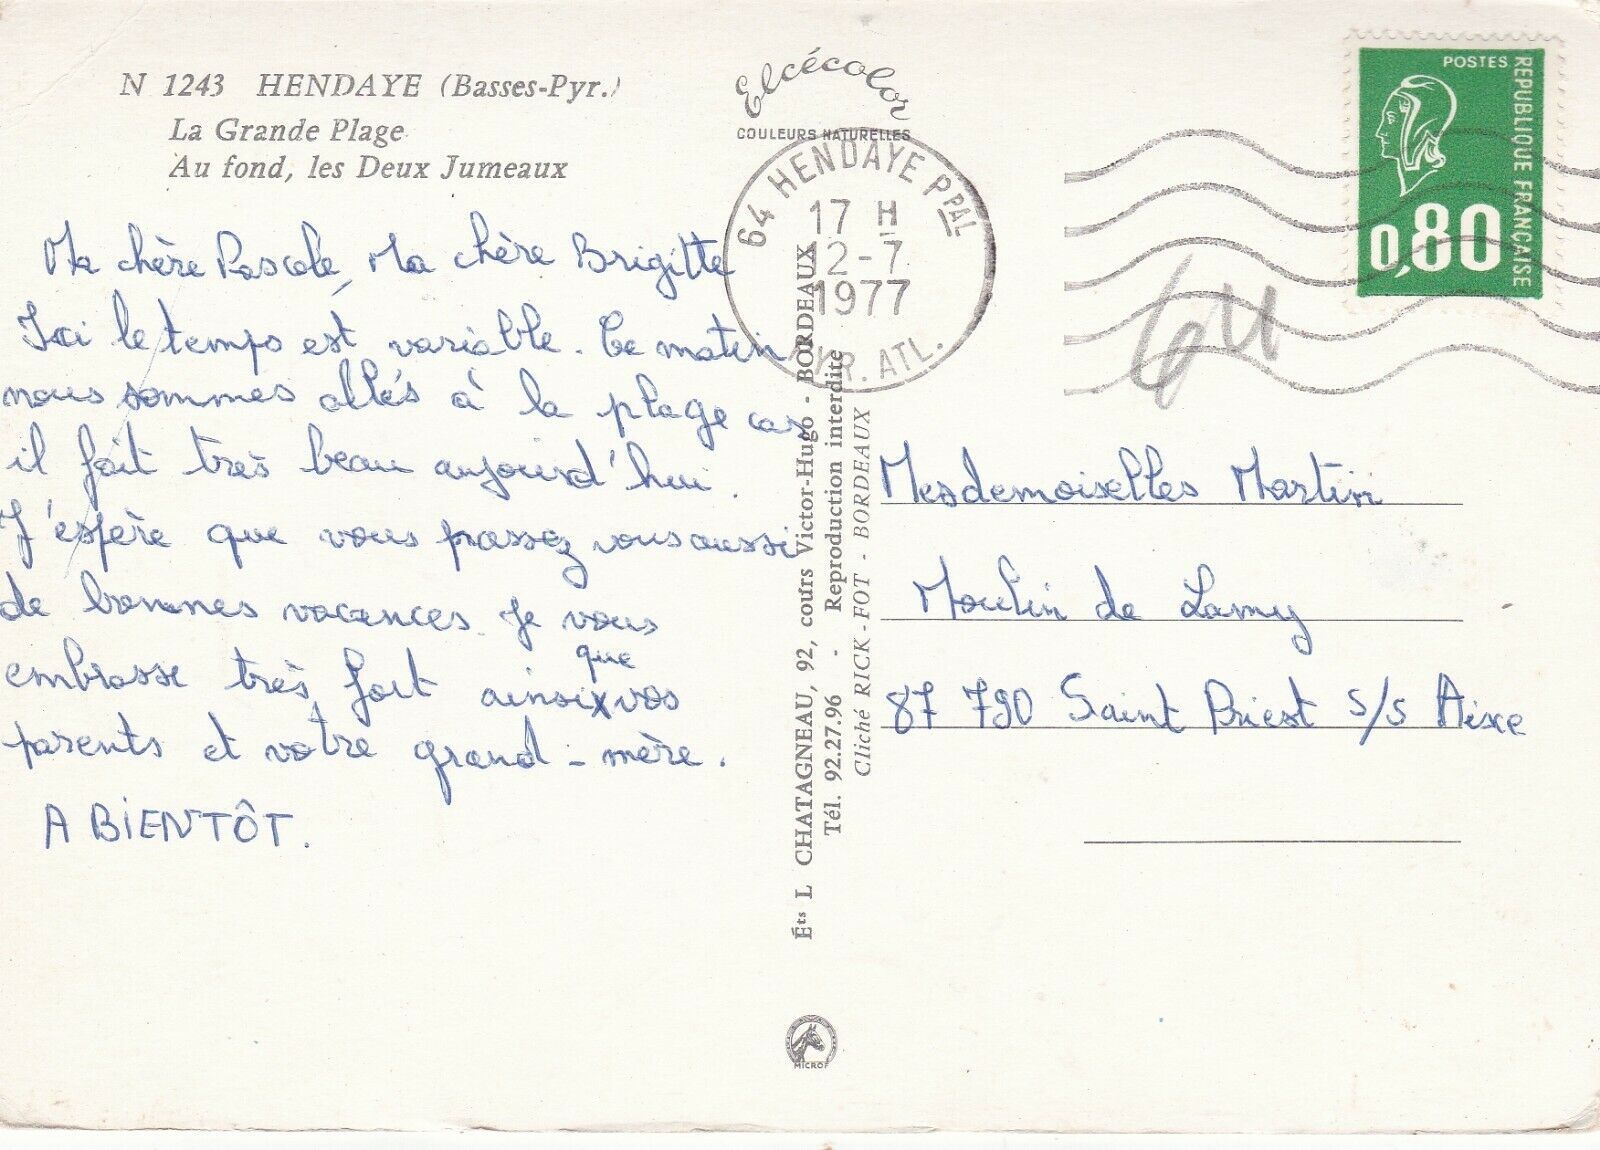 N 1243 HENDAYE (Basses-Pyr.)
La Grande Plage
Au fond, les Deux Jumeaux
Ma chère Pascale, Ma chère Brigitte
Ici le temps est variable. Ce matin
nous sommes allés à la plage car
il fait très beau aujourd'hui.
J'espère que vous passez vous aussi
de bonnes vacances. Je vous
embrasse très fort ainsi que vos
parents et votre grand-mère.
A BIENTÔT.
Elcécolor
COULEURS NATURELLES
64 HENDAYE PPAL
17 H
12-7
1977
PYR. ATL.
Éts L CHATAGNEAU, 92, cours Victor-Hugo - BORDEAUX
Tél. 92.27.96 - Reproduction interdite
Cliché RICK-FOT - BORDEAUX
MICROF
POSTES
REPUBLIQUE FRANÇAISE
0,80
64
Mesdemoiselles Martin
Moulin de Lamy
87 790 Saint Priest s/s Aixe